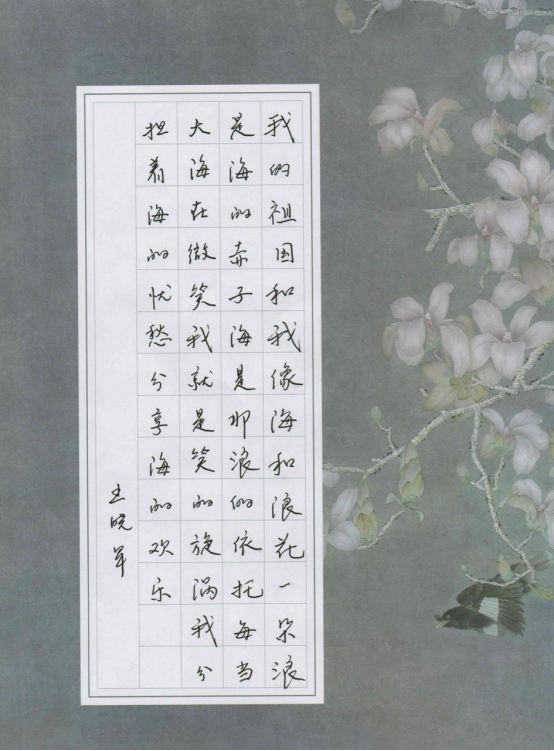 我的祖国和我像海和浪花一朵浪
是海的赤子海是那浪的依托每当
大海在微笑我就是笑的旋涡我分
担着海的忧愁分享海的欢乐
王晓军